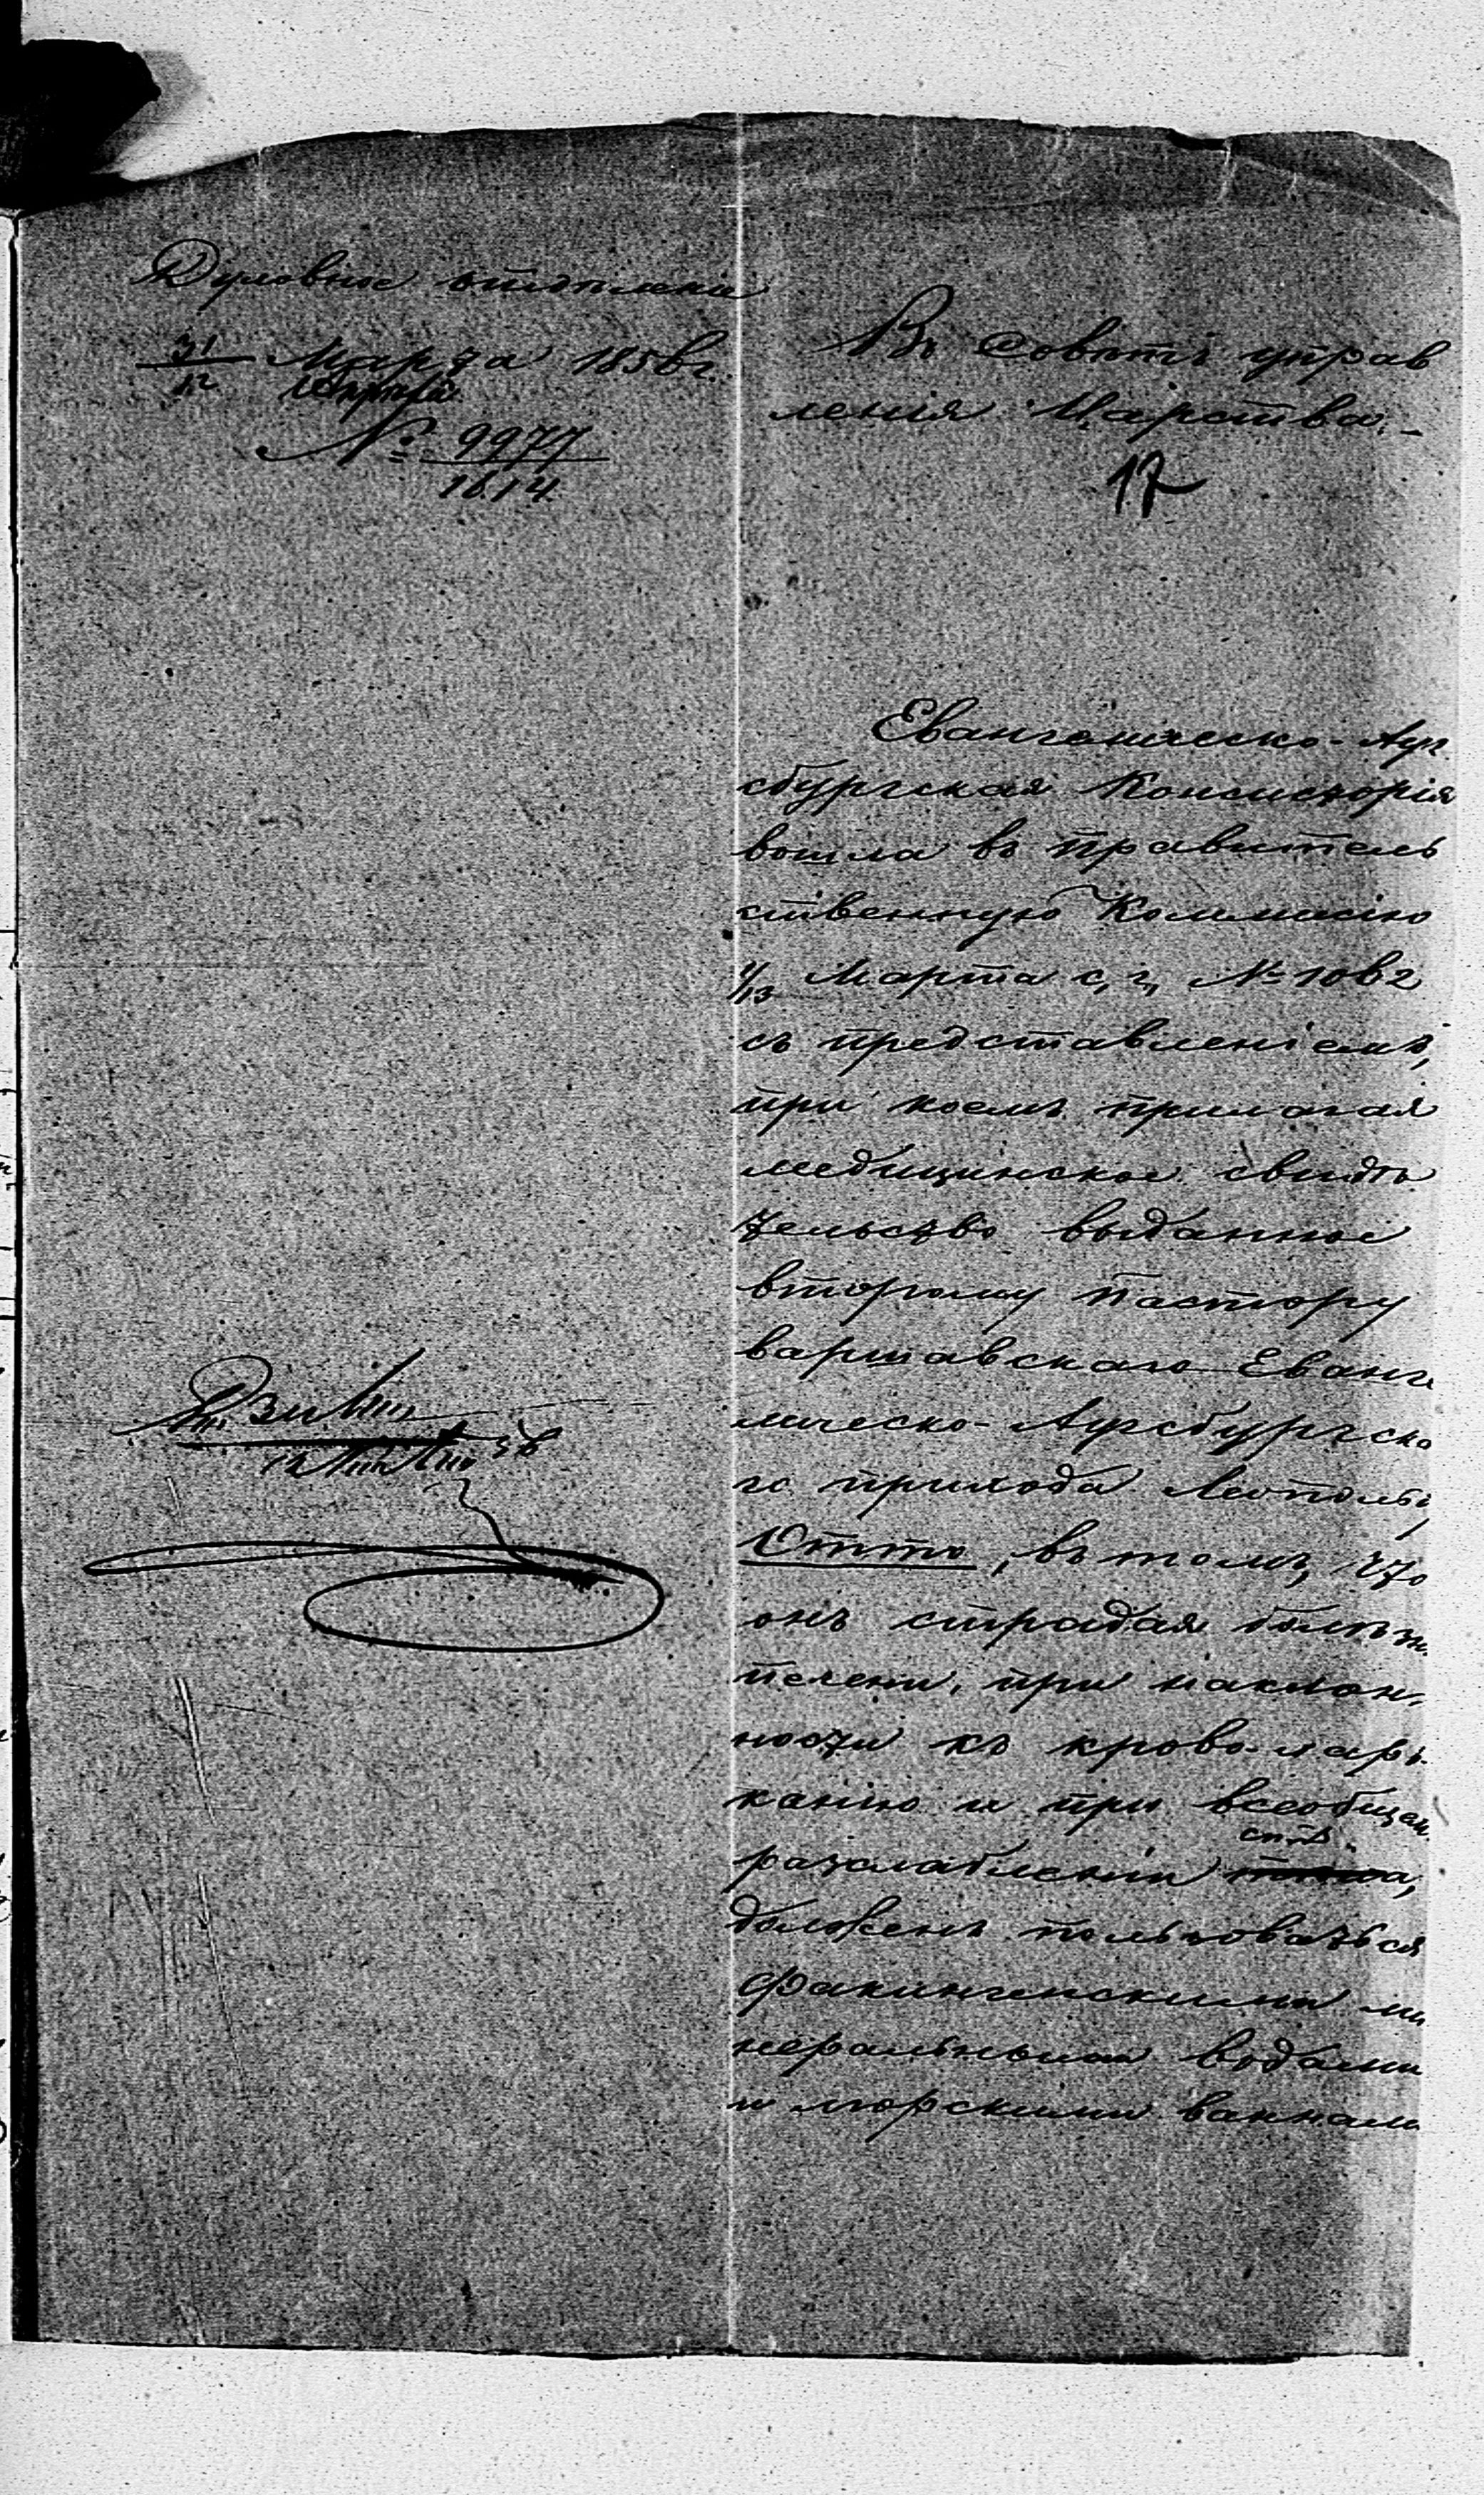 Духовное отдѣленіе
31/12 Марта/Апрѣля 1856 г.
№ 9977/1614
Въ Совѣтъ управ
ленія Царства.
17
Евангелическо-Ауг
сбургская Консисторія
вошла въ правитель
ственную Коммисію
1/13 Марта с. г. № 1062
съ представленіемъ,
при коемъ прилагая
медицинское свидѣ
тельство выданное
второму Пастору
варшавскаго Еванге
лическо-Аугсбургска
го прихода Леопольду
Отто, въ томъ, что
онъ страдая болѣзн.
печени, при наклон-
ности къ крово-харъ
канію и при всеобщем
разслаблении силъ
долженъ пользоваться
Факингенскими ми
неральными водами
и морскими ваннами